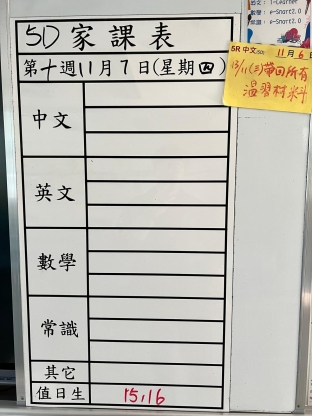 5D 家課表
第十週11月7日(星期四)
中文
英文
數學
常識
其它
值日生 15,16
e-Smart2.0
e-Smart2.0
5R 中文(5D) 11月6日
13/11(三)帶回所有
溫習材料